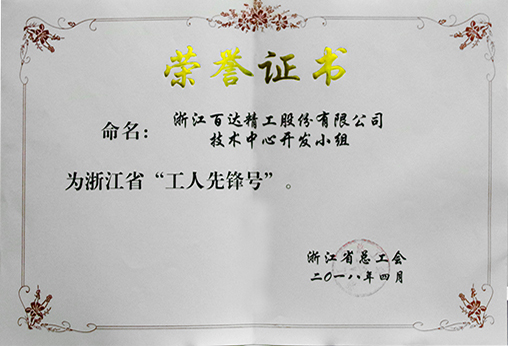 荣誉证书
命名：
浙江百达精工股份有限公司
技术中心开发小组
为浙江省“工人先锋号”。
浙江省总工会
二〇一八年四月